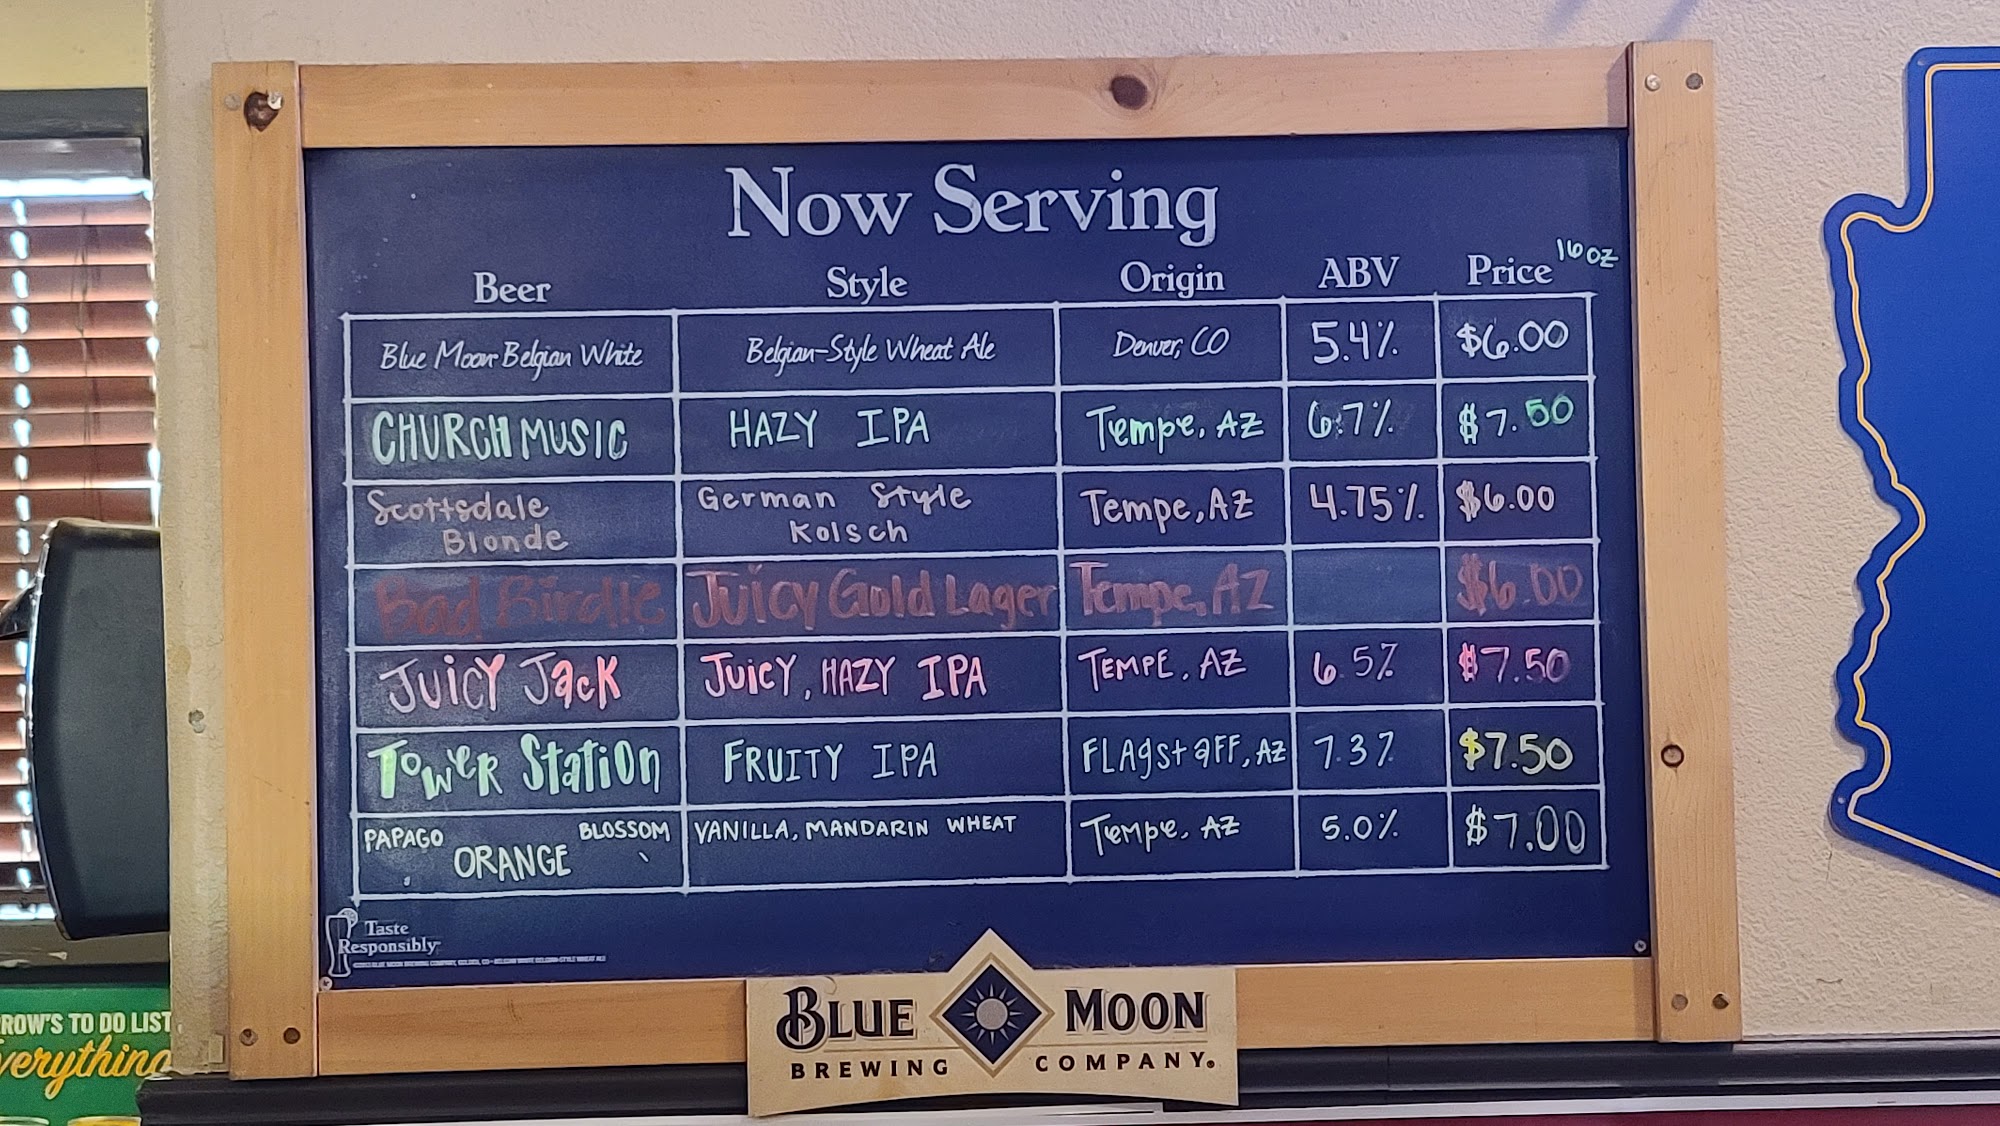 Now Serving
Beer Style Origin ABV Price 16oz
Blue Moon Belgian White Belgian-Style Wheat Ale Denver, CO 5.4% $6.00
CHURCH MUSIC HAZY IPA Tempe, AZ 6.7% $7.50
Scottsdale Blonde German Style Kolsch Tempe, AZ 4.75% $6.00
Bad Birdie Juicy Gold Lager Tempe, AZ $6.00
JUICY JacK JUICY, HAZY IPA TEMPE, AZ 6.5% $7.50
TOWER Station FRUITY IPA FLAgstaFF, AZ 7.3% $7.50
PAPAGO ORANGE BLOSSOM VANILLA, MANDARIN WHEAT Tempe, AZ 5.0% $7.00
Taste
Responsibly
BLUE MOON
BREWING COMPANY
ROW'S TO DO LIST
verything